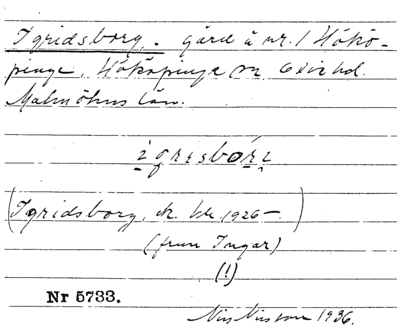 Igridsborg, gård å nr. 1 Hökö-
pinge, Hököpinge sn Oxie hd.
Malmöhus län.
ìgrɪsbórɪ
(Igridsborg, kr. 1926–)
(frun Ingar)
(!)
Nr 5733.
Nils Nilsson 1936.